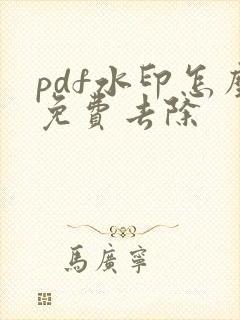 pdf水印怎麼
免費去除
馬廣寧